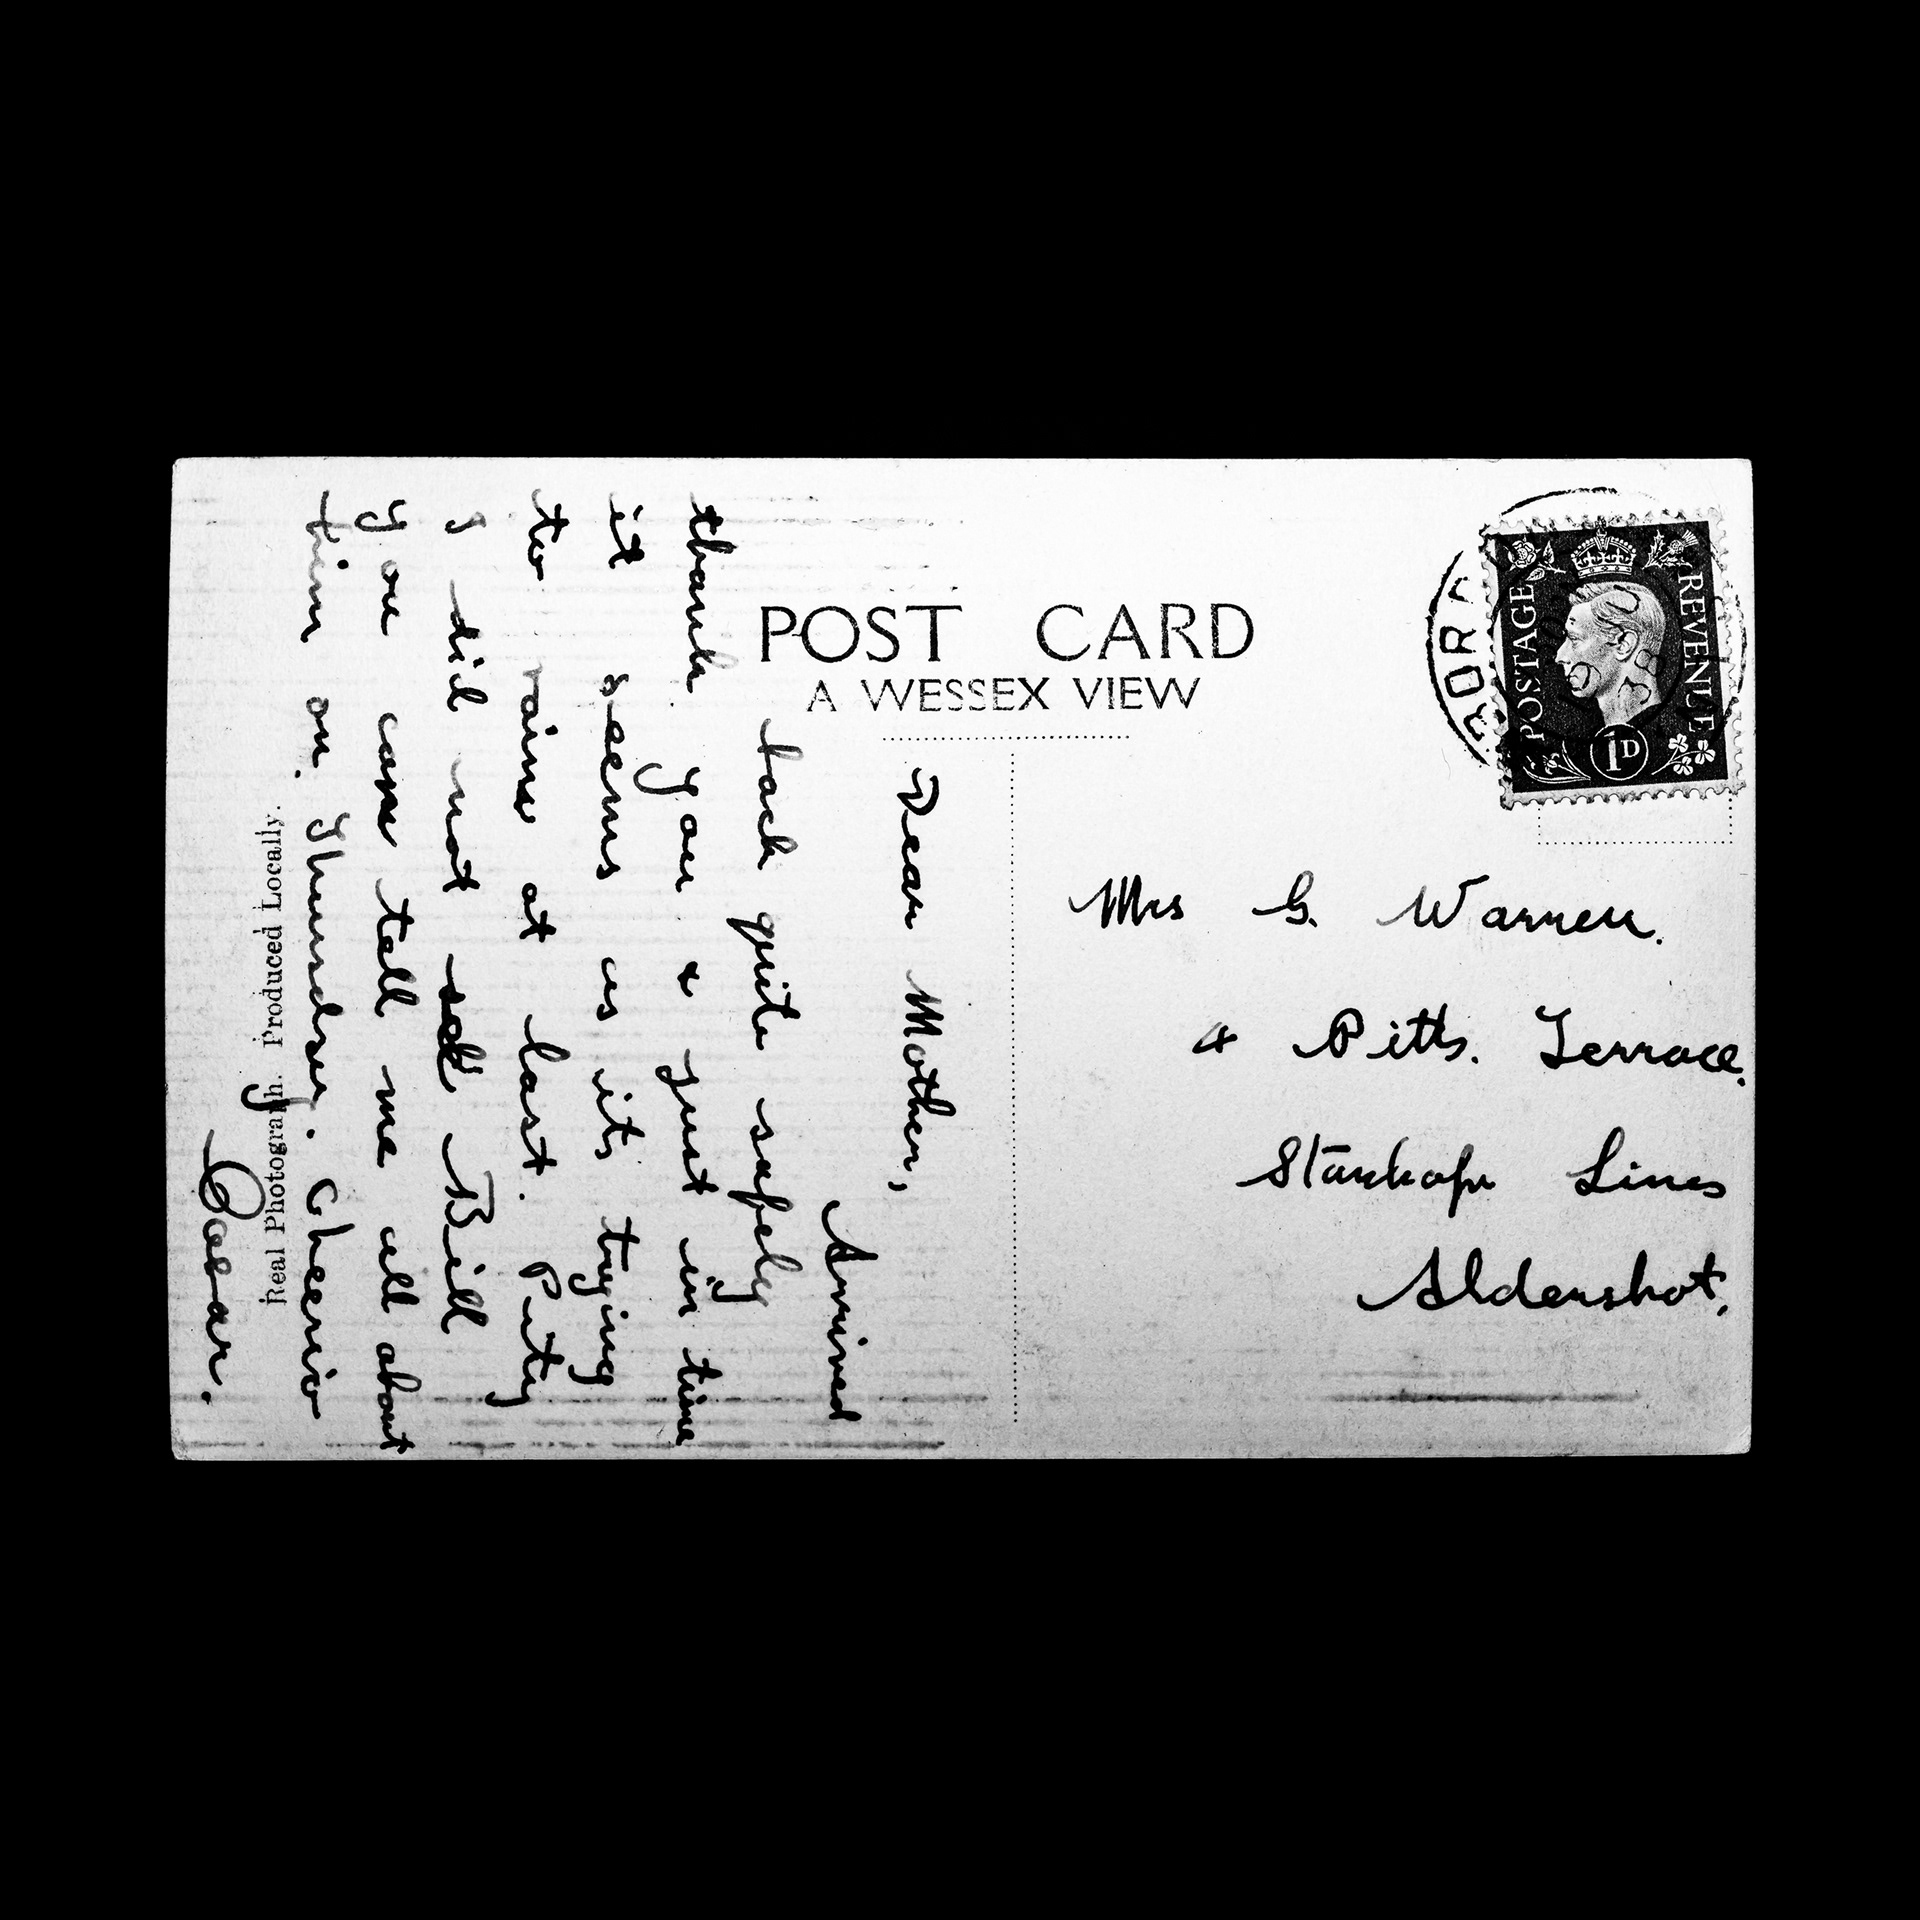 POST CARD
A WESSEX VIEW
Dear Mother,
Arrived
back quite safely
thank you & just in time
it seems as its trying
to raine at last. Pity
I did not see Bill
you can tell me all about
him on Thursday. Cheerio
Oscar.
Real Photograph. Produced Locally.
POSTAGE REVENUE
1D
Mrs G. Warren.
4 Pitts. Terrace.
Stanhope Lines
Aldershot.